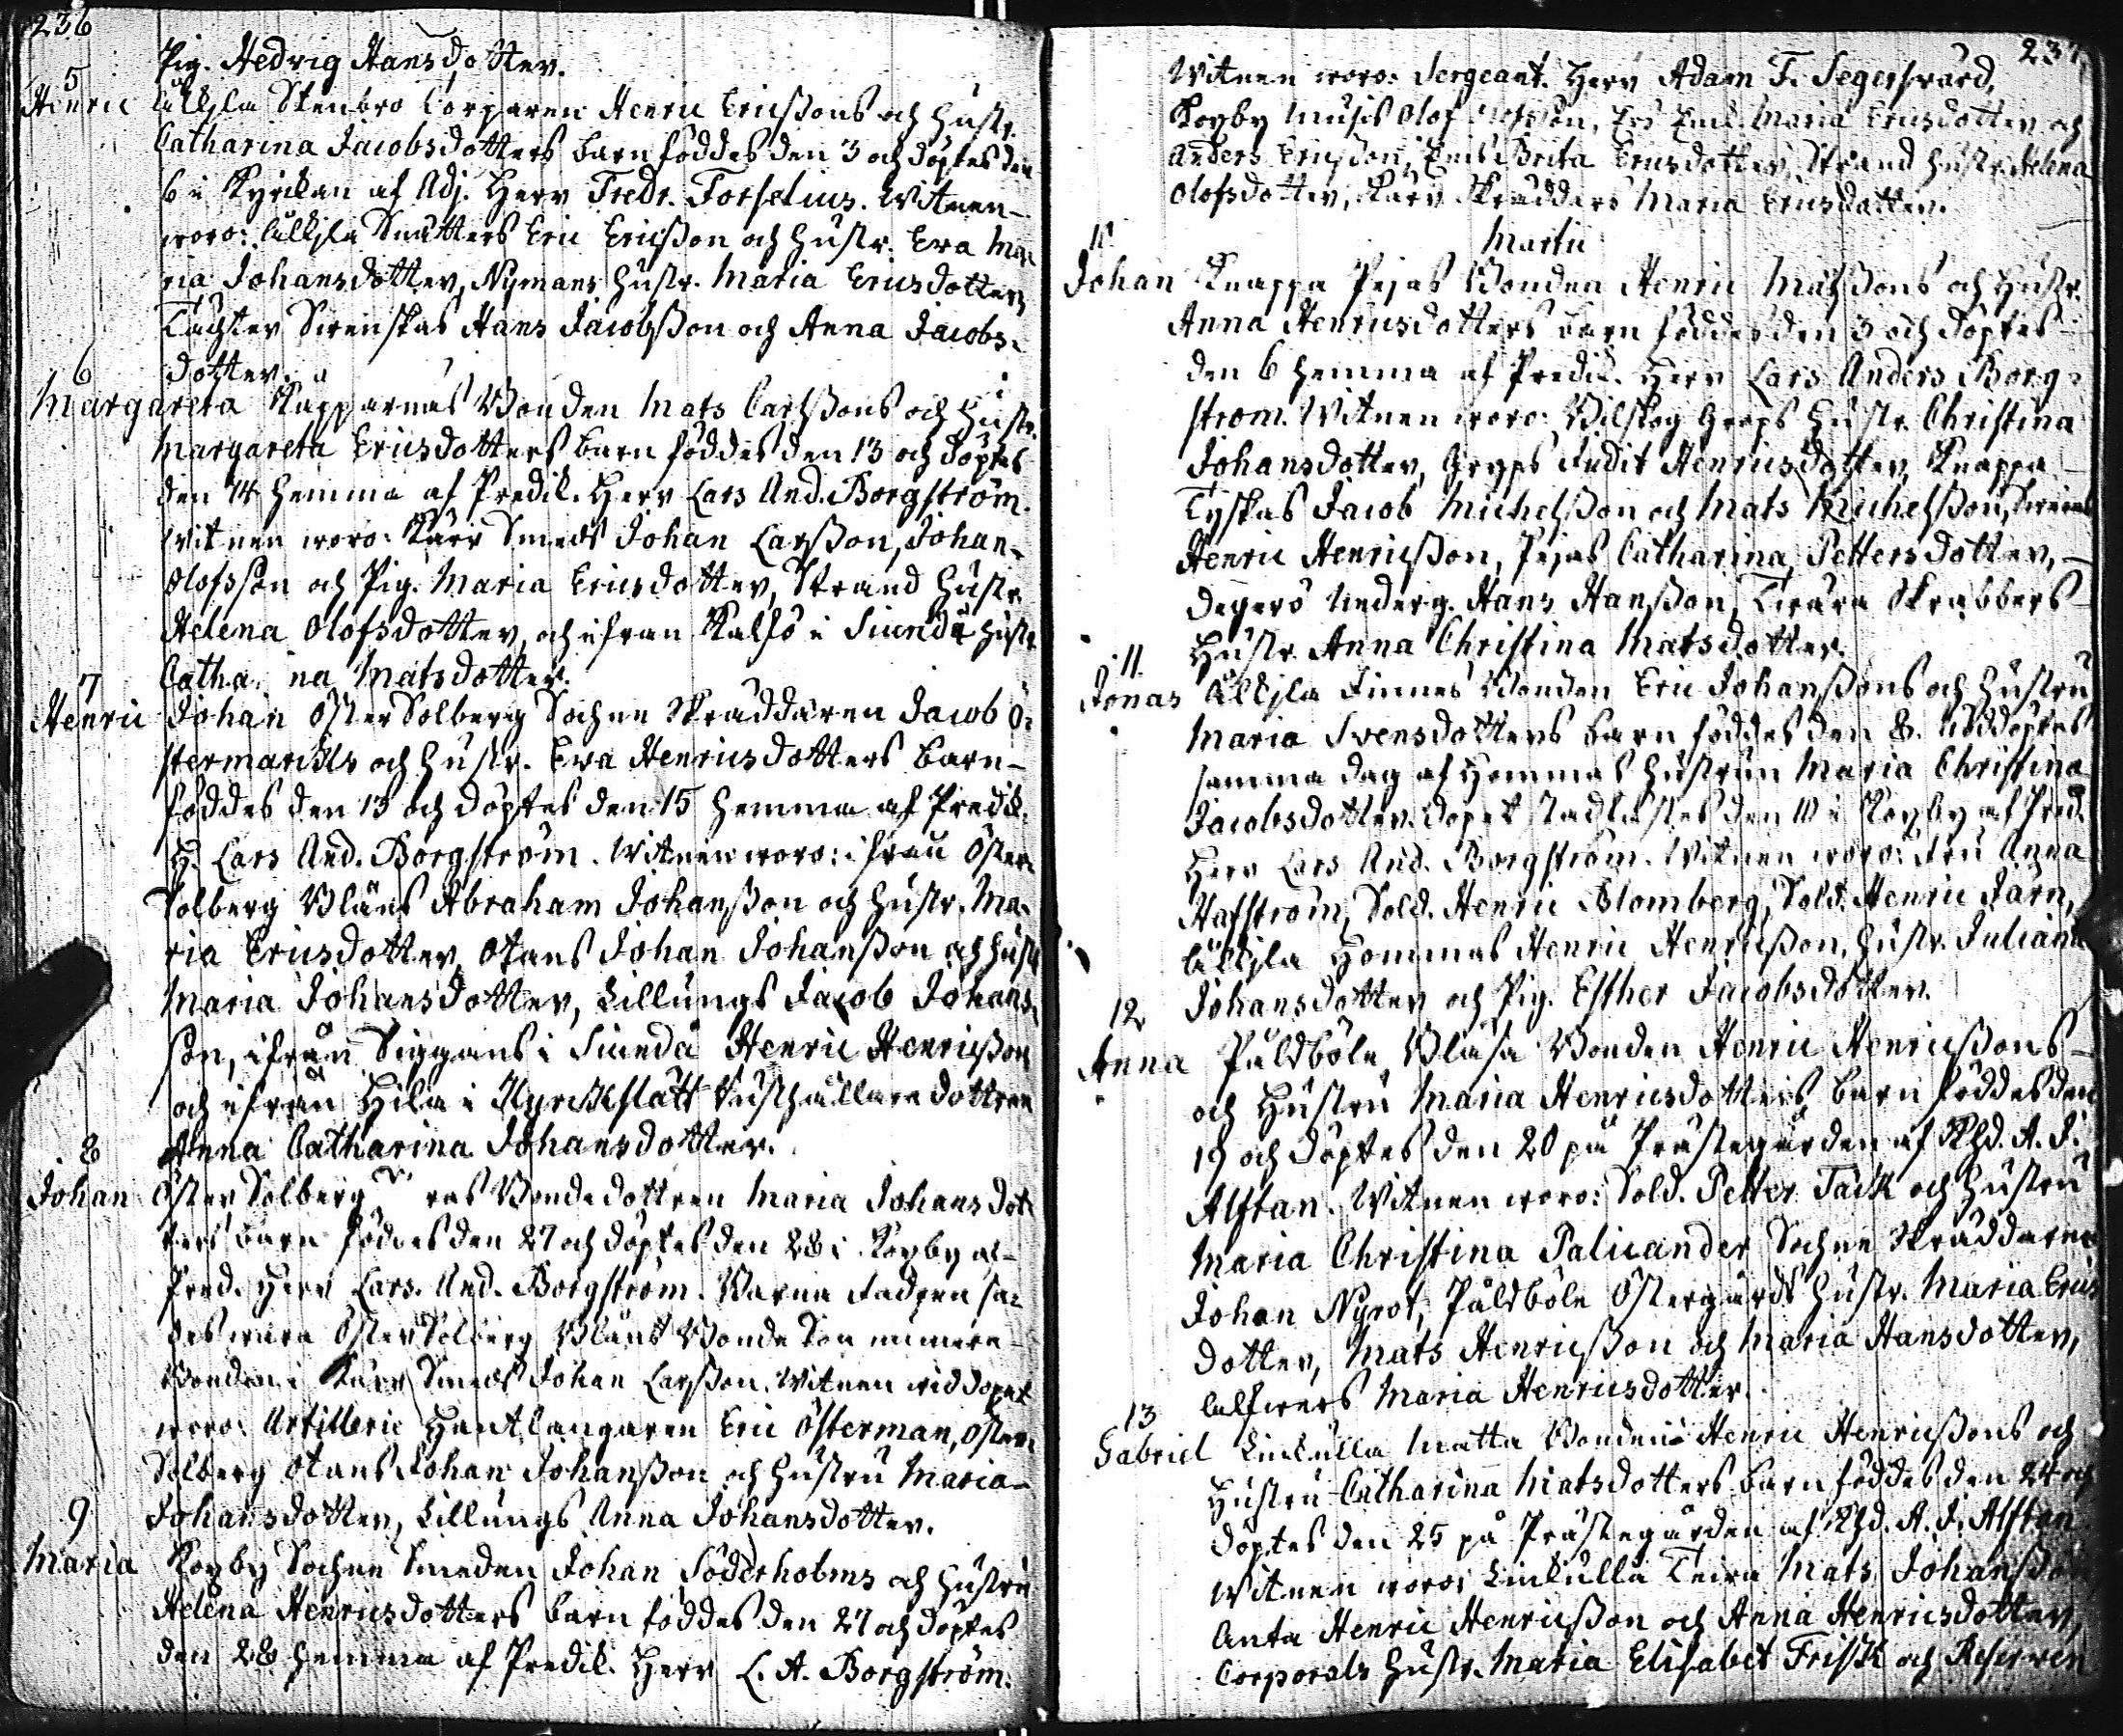 236
Pig. Hedvig Hansdotter.
5
Henric Stenbro Torparen Henric Ericßons och Hustr.
Catharina Jacobsdotters barn föddes den 3 och döptes den
6 i Kyrckan af Adj. Herr Fredr. Forselius. Witnen
woro: Eric Ericßon och Hustr. Eva Ma-
ria Johansdotter, Nymans Hustr. Maria Ericsdotter,
Täckter Hans Jacobßon och Anna Jacobs-
dotter.
6
Margareta Kapparnas Bonden Mats Carlßons och Hustr.
Margareta Ericsdotters barn föddes den 13 och döptes
den 14 hemma af Predik. Herr Lars And. Borgström.
Witnen woro: Kärr Smeds Johan Larßon, Johan
Olofsson och Pig. Maria Ericsdotter, Strand Hustr.
Helena Olofsdotter, och ifrån Kalfö i Siundå Hustr.
Catha na Matsdotter.
7
Henric Johan Öster Solberg Sockne Skräddaren Jacob Ö-
stermarcks och Hustr. Eva Henricsdotters barn
föddes den 13 och döptes den 15 hemma af Predik.
H. Lars And. Borgström. Witnen woro: ifrån Öster
Solberg Bläns Abraham Johanßon och Hustr. Ma-
ria Ericsdotter, Otans Johan Johanßon och Hustr.
Maria Johansdotter, Lillungs Jacob Johans-
son, ifrån Siggans i Siundå Henric Henricßon
och ifrån Hila i Kyrckslätt dottren
Anna Catharina Johansdotter.
8
Johan Öster Solberg Bondedottren Maria Johansdot-
ters barn föddes den 27 och döptes den 28 i Köpby af
Pred. Herr Lars. And. Borgström. Barna Fadren sa-
des wara Öster Solberg Bläns Bonde Son numera
Bonden i Kärr Smeds Johan Larßon. Witnen wid dopet
woro: Artillerie Hantlangaren Eric Österman, Öster
Solberg Otans Johan Johanßon och Hustru Maria
Johansdotter, Lillungs Anna Johansdotter.
9
Maria Köpby Sockne Smeden Johan Söderholms och Hustru
Helena Henricsdotters barn föddes den 27 och döptes
den 28 hemma af Predik. Herr L. A. Borgström.
237
Witnen woro: Sergeant. Herr Adam F. Segersvärd,
Köpby Olof Olofsson, Maria Ericsdotter och
Anders Ericßon, Brita Ericsdotter, Strand Hustr. Helena
Olofsdotter, Kärr Skräddars Maria Ericsdotter.
Martii
Johan Knappa Pejas Bonden Henric Matsßons och Hustr.
Anna Henricsdotters barn föddes den 3 och döptes
den 6 hemma af Predik. Herr Lars Anders Borg-
ström. Witnen woro: Bilskog Hustr. Christina
Johansdotter, Judit Henricsdotter, Knappa
Tyskas Jacob Michelßon och Mats Michelßon,
Henric Henricßon, Pejas Catharina Pettersdotter,
Degerö Underg. Hans Hanßon, Skräbbers
Hustr. Anna Christina Matsdotter.
11.
Jonas Finnes Bonden Eric Johanßons och Hustru
Maria Svensdotters barn föddes den 8. nöddöptes
samma dag af Hommas Hustrun Maria Christina
Jacobsdotter. Dopet stadfästes den 10 i Köpby af Pred.
Herr Lars And. Borgström. Witnen woro: Fru Anna
Hafström, Sold. Henric Blomberg, Sold. Henric Järn,
Hommas Henric Henricßon, Hustr. Juliana
Johansdotter och Pig. Esther Jacobsdotter.
12
Anna Påldböle Bläsa Bonden Henric Henricßons
och Hustru Maria Henricsdotters barn föddes den
19 och döptes den 20 på Prästegården af Khd. A. J.
Alftan. Witnen woro: Sold. Petter Tack och Hustru
Maria Christina Palicander Sockne Skräddaren
Johan Nyrot, Påldböle Östergårds Hustr. Maria Erics
dotter, Mats Henricßon och Maria Hansdotter,
Maria Henricsdotter.
13
Gabriel Linkulla Matta Bonden Henric Henricßons och
Hustru Catharina Matsdotters barn föddes den 24 och
döptes den 25 på Prästegården af Khd. A. J. Alftan.
Witnen woro: Linkulla Teira Mats Johanßon
Anta Henric Henricßon och Anna Henricsdotter,
Corporals Hustr. Maria Elisabet Frisk och Reserven